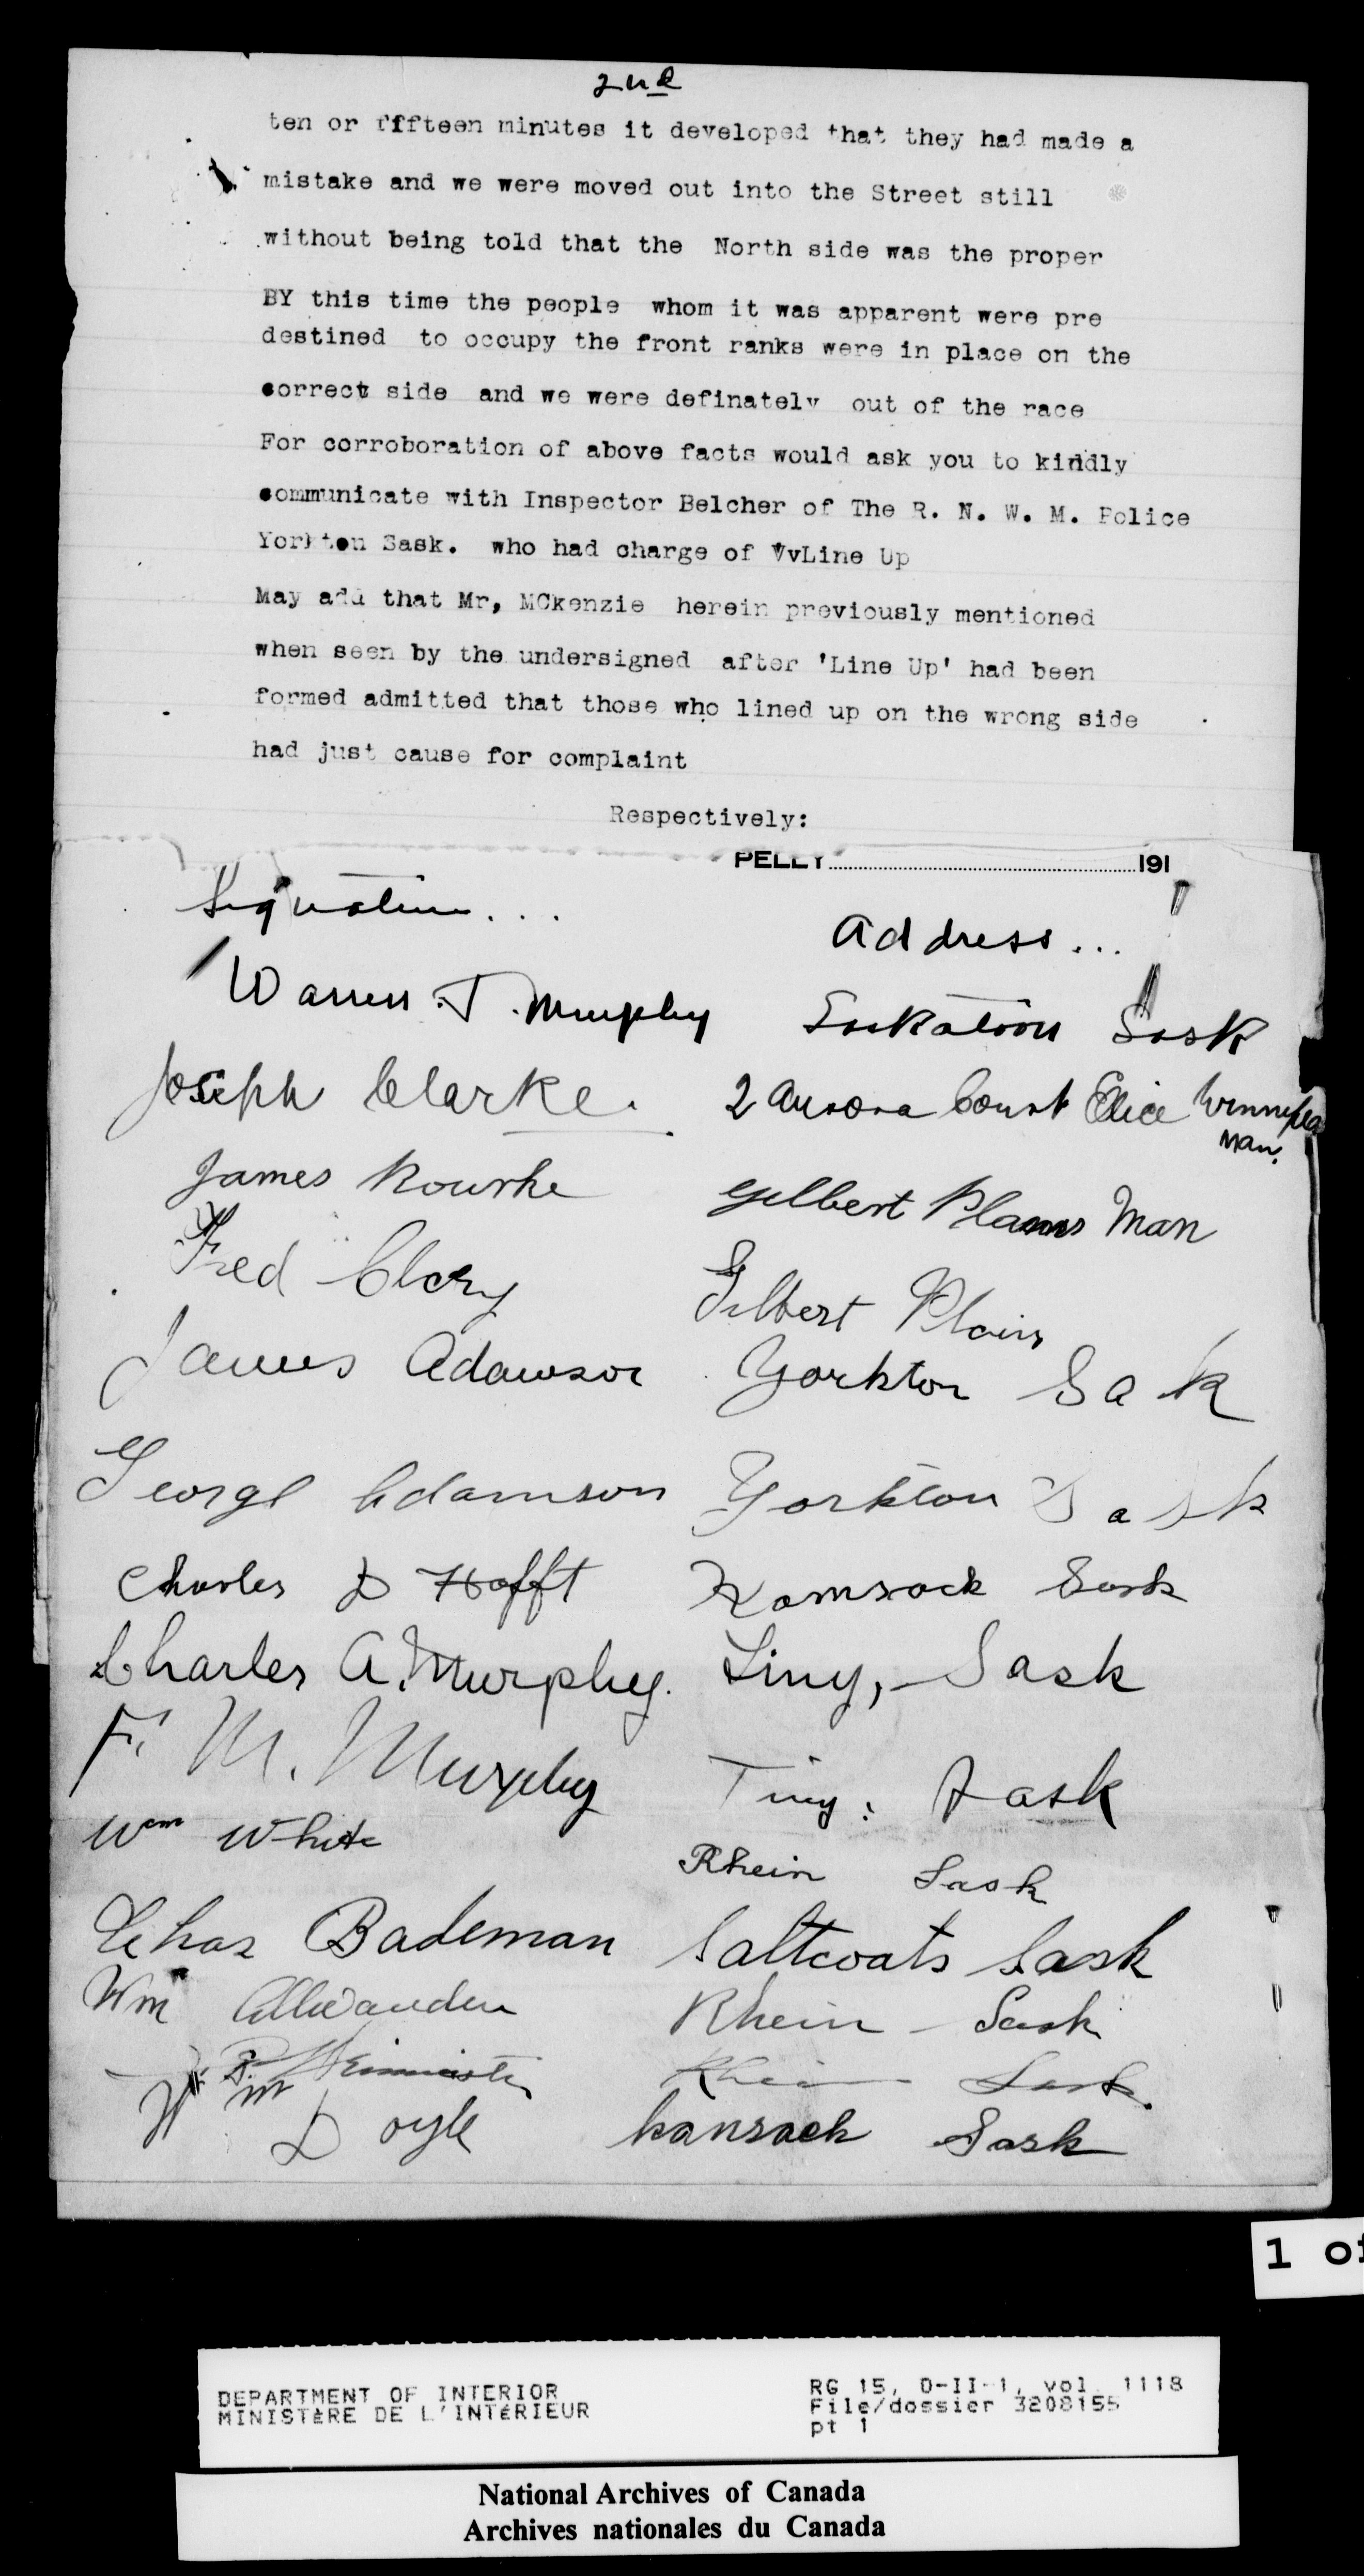 2nd
ten or fifteen minutes it developed that they had made a
mistake and we were moved out into the Street still
without being told that the North side was the proper
BY this time the people whom it was apparent were pre
destined to occupy the front ranks were in place on the
correct side and we were definately out of the race
For corroboration of above facts would ask you to kindly
communicate with Inspector Belcher of The R. N. W. M. Police
Yorkton Sask. who had charge of VvLine Up
May add that Mr, MCkenzie herein previously mentioned
when seen by the undersigned after 'Line Up' had been
formed admitted that those who lined up on the wrong side
had just cause for complaint
Respectively:
PELLY 191
Signature...
Address...
Warren T. Murphy Saskatoon Sask
Joseph Clarke. 2 Aurora Court Ellice Winnipeg
Man.
James Rourke Gilbert Plains Man
Fred Clary Gilbert Plains
James Adamson Yorkton Sa k
George Adamson Yorkton Sask
Charles D Hofft Kamsack Sask
Charles A. Murphy. Tiny, Sask
F. M. Murphy Tiny, Sask
Wm White Rhein Sask
Chas Bademan Saltcoats Sask
Wm Rhein - Sask
Rhein Sask.
Wm Doyle kansack Sask
1 of
DEPARTMENT OF INTERIOR
MINISTÈRE DE L'INTÉRIEUR
RG 15, D-II-1, vol. 1118
File/dossier 3208155
pt 1
National Archives of Canada
Archives nationales du Canada